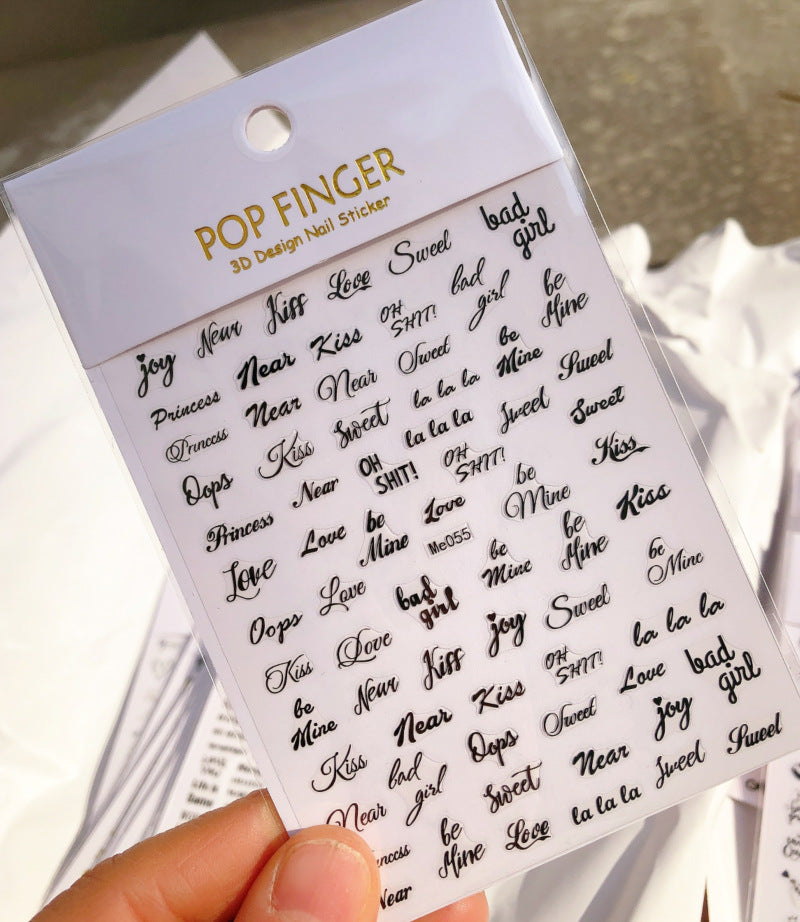 POP FINGER
3D Design Nail Sticker
joy Near Kiss Love Sweet bad girl
Princess Near Kiss OH SHIT! bad girl be Mine
Princess Near Near Sweet be Mine Sweet
Oops Kiss Sweet la la la Sweet Sweet
Near OH SHIT! la la la OH SHIT!
Princess Love be Mine Love be Mine Kiss
Love Me055 be Mine be Mine Kiss
Oops Love bad girl be Mine
Kiss Love Kiss joy Sweet la la la
be Mine Near Near Kiss OH SHIT! Love bad girl
Kiss bad girl Oops Sweet joy
Near Sweet Near Sweet Sweet
be Mine Love la la la
Near